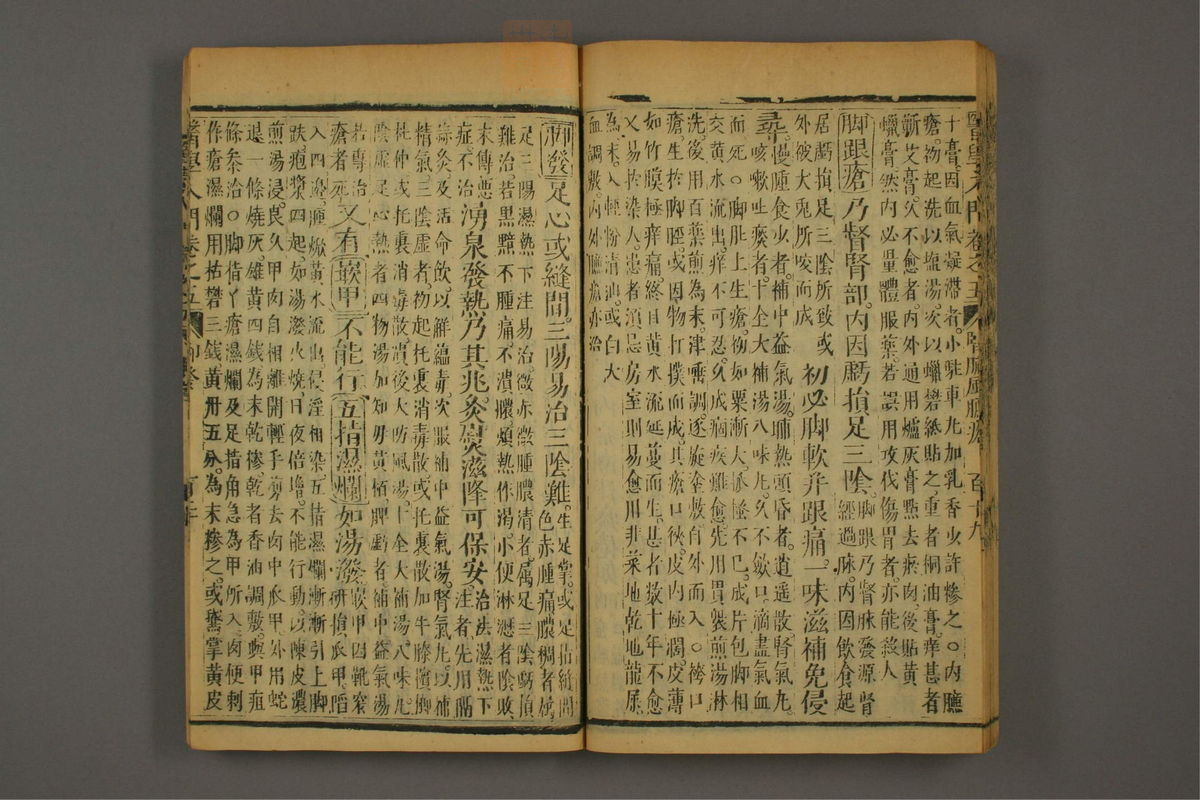 醫學入門卷之五 臁瘡風臁瘡 百十九
十膏因血氣凝滯者小駐車丸加乳香少許摻之○內臁
瘡初起洗以塩湯次以蠟礬紙貼之重者桐油膏痒甚者
蘄艾膏久不愈者內外通用爐灰膏點去瘀肉後貼黃
蠟膏然內必量體服藥若誤用攻伐傷胃者亦能殺人
脚跟瘡乃督腎部內因虧損足三陰脚跟乃督脉發源腎
經過脉內因飲食起
居虧損足三陰所致或
外被犬兎所咬而成初必脚軟并跟痛一味滋補免侵
尋慢腫食少者補中益氣湯晡熱頭昏者逍遥散腎氣丸
咳嗽吐痰者十全大補湯八味丸久不歛口滴盡氣血
而死○脚肚上生瘡初如粟漸大抓搔不已成片包脚相
交黃水流出痒不可忍久成痼疾難愈先用貫衆煎湯淋
洗後用百藥煎為末津唾調逐旋塗敷自外而入○裙口
瘡生於脚脛或因物打撲而成其瘡口狹皮內極濶皮薄
如竹膜極痒痛終日黃水流延蔓而生甚者數十年不愈
又易於染人患者須忌房室則易愈用韭菜地乾地龍屎
為末入輕粉清油或白犬
血調敷內外臁瘡亦治
脚發足心或縫間三陽易治三陰難生足掌或足指縫間
色赤腫痛膿稠者屬
足三陽濕熱下注易治微赤微腫膿清者屬足三陰虧損
難治若黑黯不腫痛不潰膿煩熱作渴小便淋瀝者陰敗
末傳惡
症不治湧泉發熱乃其兆灸熨滋降可保安治法濕熱下
注者先用隔
蒜灸及活命飲以解蘊毒次服補中益氣湯腎氣丸以補
精氣三陰虛者初起托裏消毒散或托裏散加牛膝檳榔
杜仲或托裏消毒散潰後大防風湯十全大補湯八味丸
陰虛足心熱者四物湯加知母黃栢脾虧者補中益氣湯
若專治
瘡者死又有嵌甲不能行五指濕爛如湯潑嵌甲因靴窄
研損爪甲䧟
入四邊腫焮黃水流出侵淫相染五指濕爛漸漸引上脚
趺疱漿四起如湯潑火燒日夜倍增不能行動以陳皮濃
煎湯浸良久甲肉自相離開輕手剪去肉中爪甲外用蛇
退一條燒灰雄黃四錢為末乾摻乾者香油調敷與甲疽
條叅治○脚指丫瘡濕爛及足指角急為甲所入肉便刺
作瘡濕爛用枯礬三錢黃丹五分為末摻之或鵞掌黃皮
醫學入門卷之五 脚發 百二十